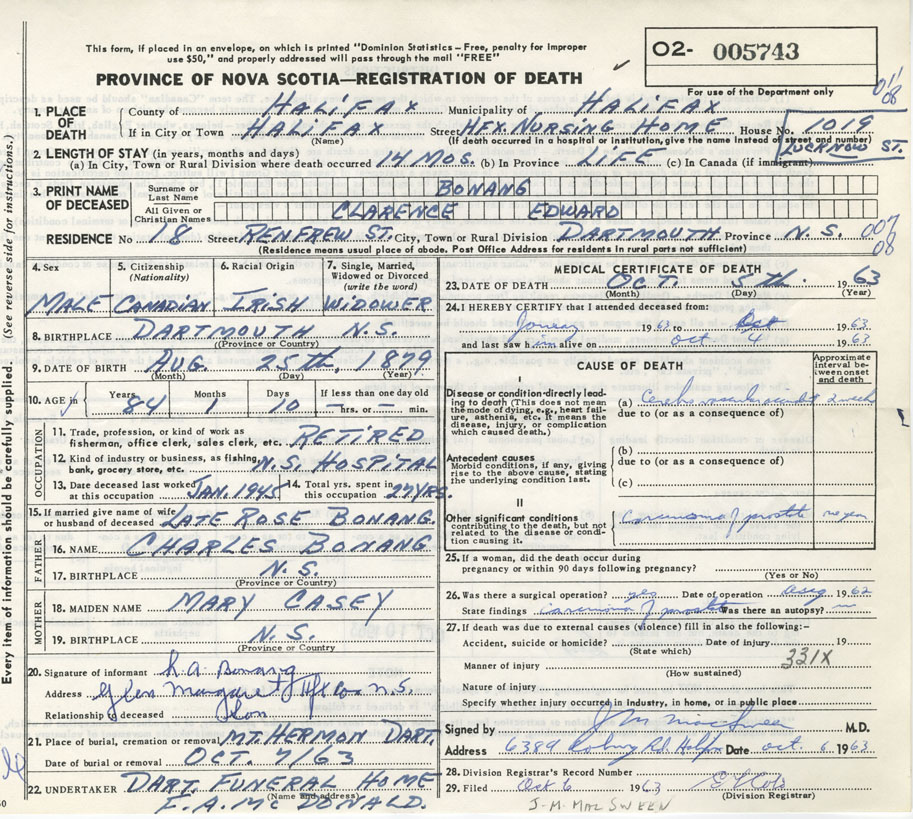 This form, if placed in an envelope, on which is printed "Dominion Statistics – Free, penalty for improper
use $50," and properly addressed will pass through the mail "FREE"
O2- 005743
PROVINCE OF NOVA SCOTIA—REGISTRATION OF DEATH
For use of the Department only
1. PLACE OF DEATH
County of HALIFAX Municipality of HALIFAX
If in City or Town HALIFAX Street HFX. NURSING HOME House No. 1019
(Name) (If death occurred in a hospital or institution, give the name instead of street and number)
LUCKNOW ST.
2. LENGTH OF STAY (in years, months and days)
(a) In City, Town or Rural Division where death occurred 14 MOS. (b) In Province LIFE (c) In Canada (if immigrant)
3. PRINT NAME OF DECEASED
Surname or Last Name BONANG
All Given or Christian Names CLARENCE EDWARD
RESIDENCE No 18 Street RENFREW ST. City, Town or Rural Division DARTMOUTH Province N.S.
(Residence means usual place of abode. Post Office Address for residents in rural parts not sufficient)
007
08
(See reverse side for instructions.)
Every item of information should be carefully supplied.
4. Sex MALE
5. Citizenship (Nationality) CANADIAN
6. Racial Origin IRISH
7. Single, Married, Widowed or Divorced (write the word) WIDOWER
8. BIRTHPLACE DARTMOUTH N.S.
(Province or Country)
9. DATE OF BIRTH AUG. 25th, 1879
(Month) (Day) (Year)
10. AGE in Years 84 Months 1 Days 10 If less than one day old – hrs. or – min.
OCCUPATION
11. Trade, profession, or kind of work as
fisherman, office clerk, sales clerk, etc. RETIRED
12. Kind of industry or business, as fishing,
bank, grocery store, etc. N.S. HOSPITAL
13. Date deceased last worked at this occupation JAN. 1945
14. Total yrs. spent in this occupation 27 YRS.
15. If married give name of wife
or husband of deceased LATE ROSE BONANG.
FATHER
16. NAME CHARLES BONANG
17. BIRTHPLACE N.S.
(Province or Country)
MOTHER
18. MAIDEN NAME MARY CASEY
19. BIRTHPLACE N.S.
(Province or Country
20. Signature of informant Bonang
Address Glen Margaret Hfx Co N.S.
Relationship to deceased Son
21. Place of burial, cremation or removal MT. HERMON DART.
Date of burial or removal OCT. 7/63
22. UNDERTAKER DART. FUNERAL HOME
(Name and address)
F.A. McDONALD.
MEDICAL CERTIFICATE OF DEATH
23. DATE OF DEATH OCT. 5th. 1963
(Month) (Day) (Year)
24. I HEREBY CERTIFY that I attended deceased from:
1963 to Oct 1963
and last saw him alive on oct 4 1963
CAUSE OF DEATH
Approximate interval between onset and death
I
Disease or condition directly leading to death (This does not mean the mode of dying, e.g., heart failure, asthenia, etc. It means the disease, injury, or complication which caused death.)
(a) 2 weeks
due to (or as a consequence of)
Antecedent causes
Morbid conditions, if any, giving rise to the above cause, stating the underlying condition last.
(b)
due to (or as a consequence of)
(c)
II
Other significant conditions
contributing to the death, but not related to the disease or condition causing it.
carcinoma of prostate
25. If a woman, did the death occur during
pregnancy or within 90 days following pregnancy?
(Yes or No)
26. Was there a surgical operation? yes Date of operation aug 1962
State findings carcinoma of prostate Was there an autopsy? no
27. If death was due to external causes (violence) fill in also the following:–
Accident, suicide or homicide? Date of injury 19
(State which)
Manner of injury 331X
(How sustained)
Nature of injury
Specify whether injury occurred in industry, in home, or in public place
Signed by M.D.
Address 6389 Rd. Halifax Date oct. 6 1963
28. Division Registrar's Record Number
29. Filed Oct 6 1963
(Division Registrar)
J-M. MACSWEEN